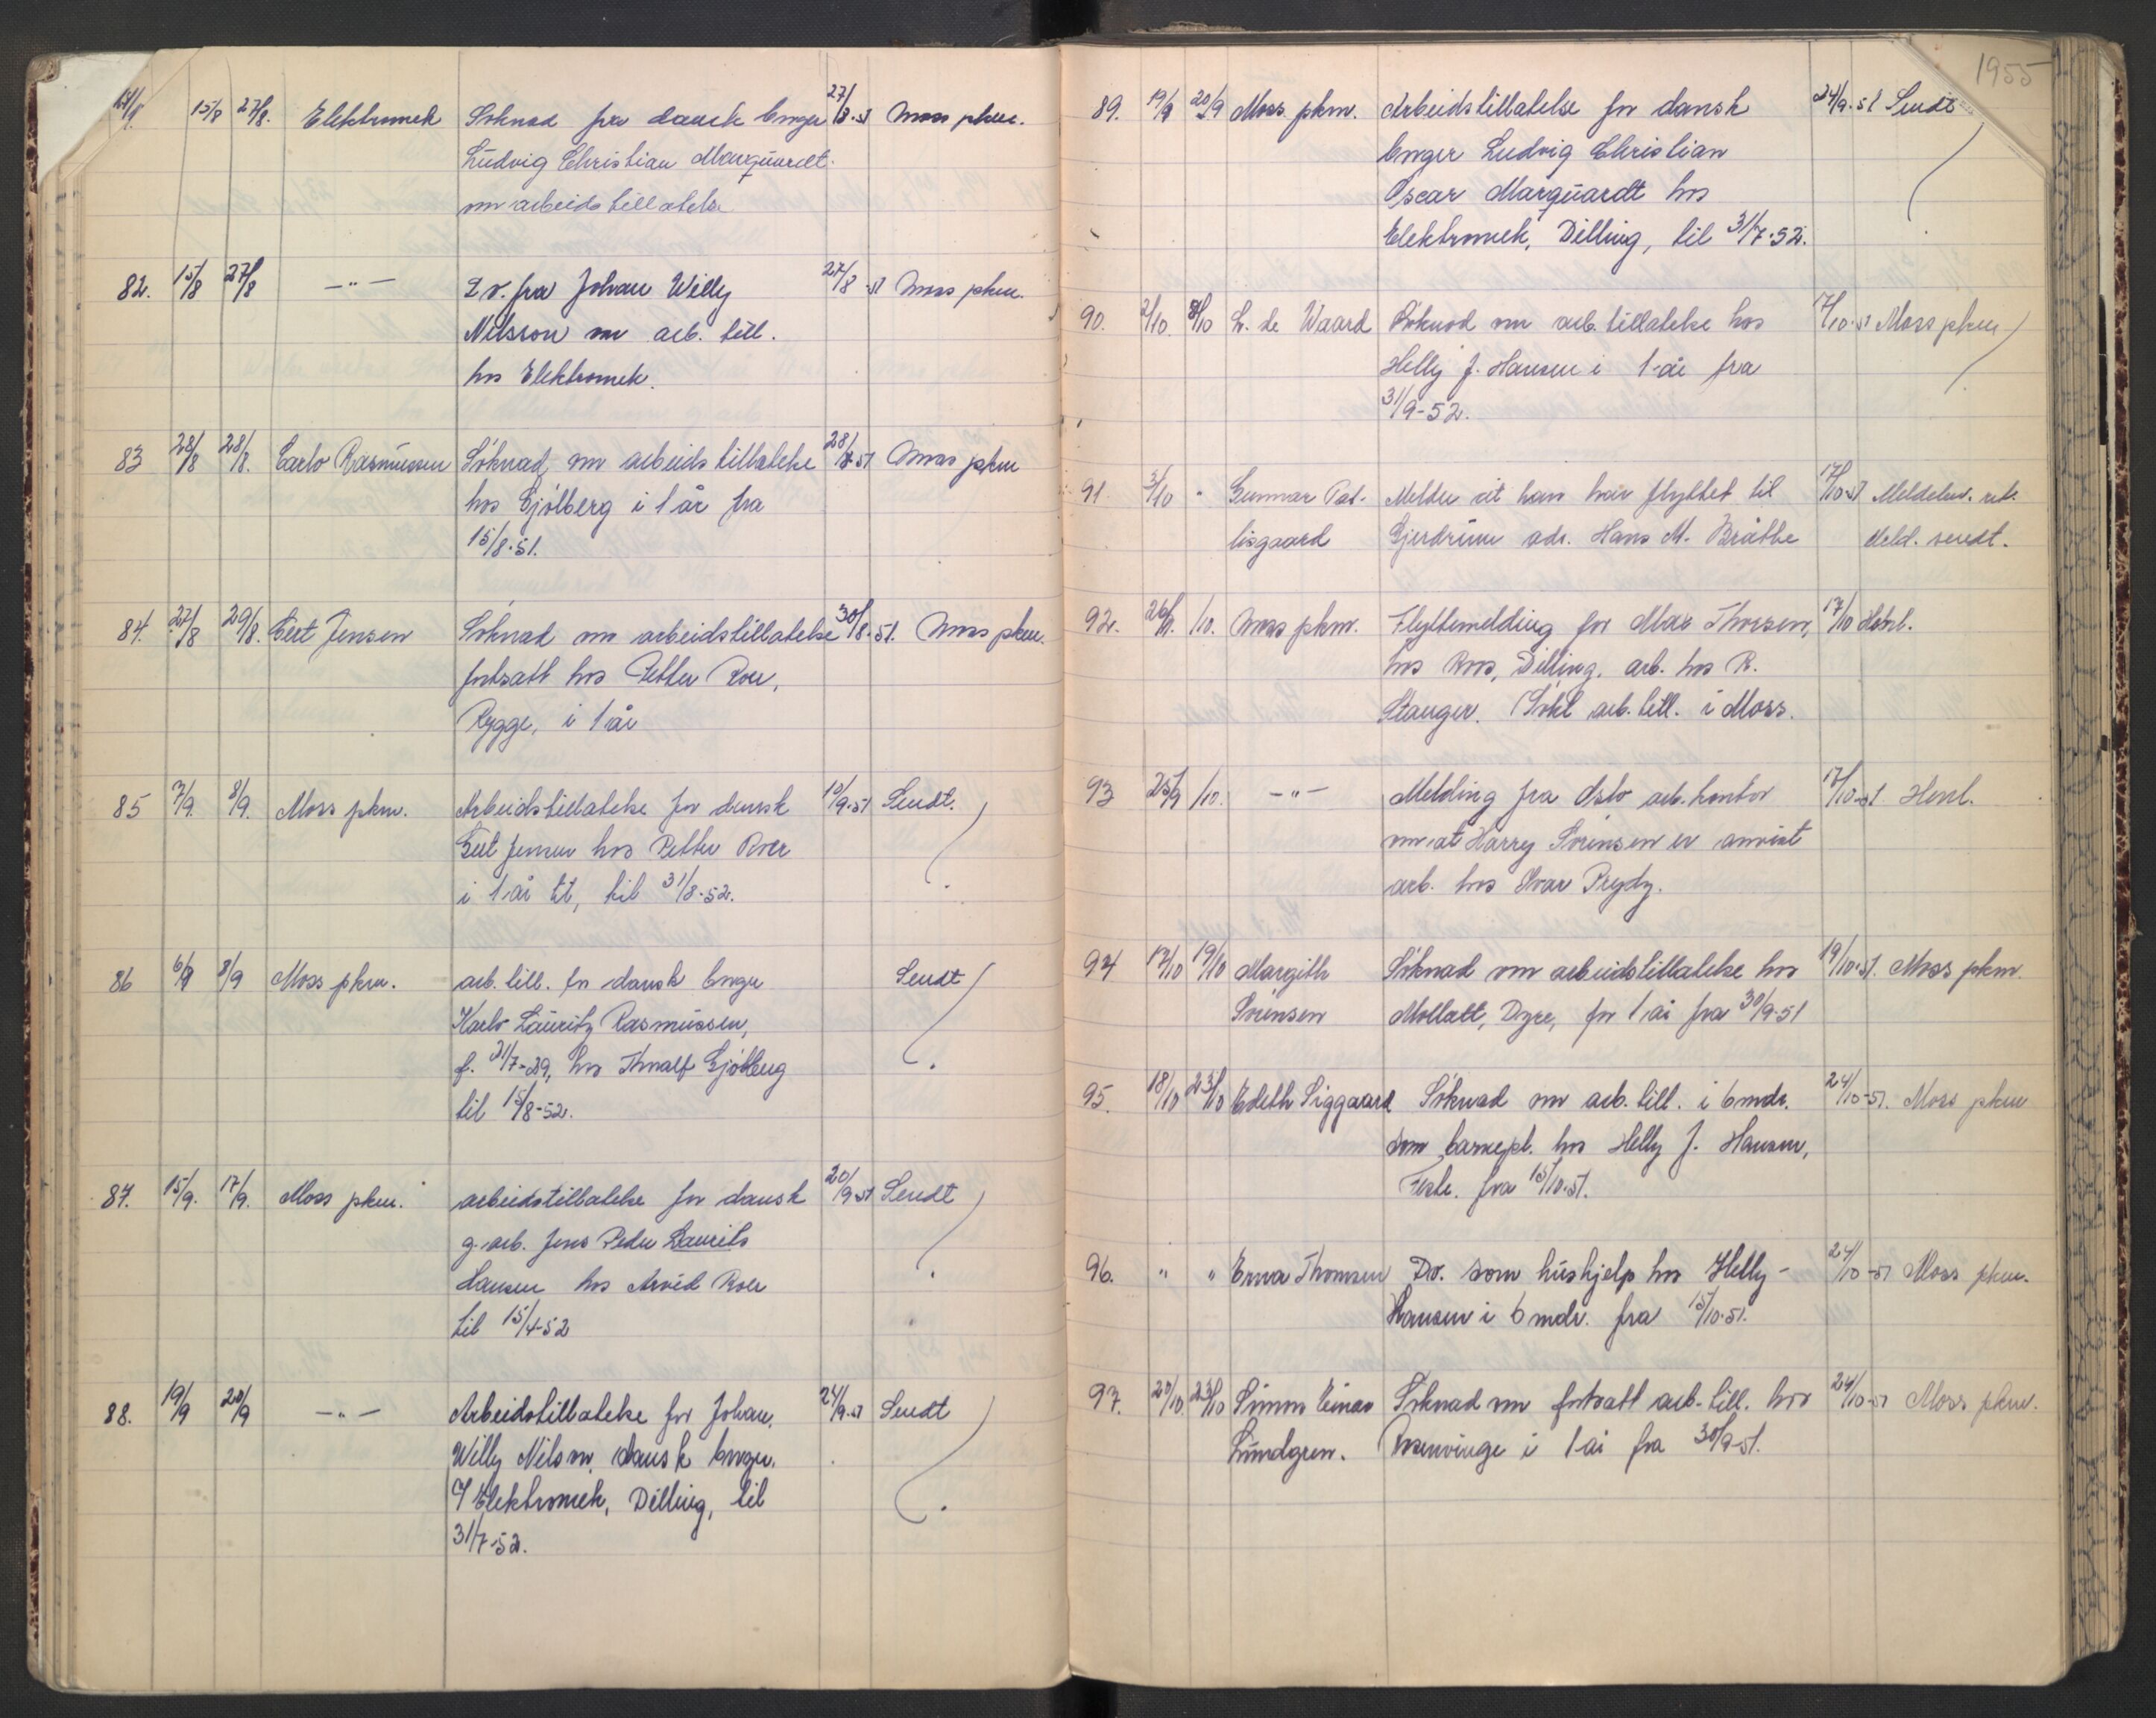 15/8 27/8. Elektromek Søknad fra dansk borger 27/8-51 Moss pkm.
Ludvig Christian Marquardt
om arbeidstillatelse
82. 15/8 27/8 —"— D.v. fra Johan Willy 27/8-51 Moss pkm.
Nilsson om arb. till.
hos Elektromek.
83 28/8 28/8. Carlo Rasmussen Søknad om arbeidstillatelse 28/8-51 Moss pkm
hos Gjølberg i 1 år fra
15/8-51.
84. 27/8 29/8. Gert Jensen Søknad om arbeidstillatelse 30/8-51. Moss pkm.
fortsatt hos Petter Roer,
Rygge, i 1 år
85 7/9. 8/9. Moss pkm. Arbeidstillatelse for dansk 10/9-51 Sendt.
Gert Jensen hos Petter Roer
i 1 år til, til 31/8-52.
86 6/9 8/9 Moss pkm. arb. till. for dansk borger Sendt
Karlo Lauritz Rasmussen,
f. 21/7-29, hos Thoralf Gjølberg
til 15/8-52.
87. 15/9. 17/9. Moss pkm. arbeidstillatelse for dansk 20/9-51 Sendt
g. arb. Jens Peder Laurits
Hansen hos Arvid Roer
til 15/4-52
88. 19/9 20/9 —"— Arbeidstillatelse for Johan 24/9-51 Sendt
Willy Nilson, dansk borger.
Elektromek, Dilling, til
31/7-52.
1955
89. 19/9 20/9 Moss pkm. Arbeidstillatelse for dansk 24/9-51 Sendt
borger Ludvig Christian
Oscar Marquardt hos
Elektromek, Dilling, til 31/7-52.
90. 2/10 8/10 L. de Waard Søknad om arb. tillatelse hos 17/10-51 Moss pkm
Helly J. Hansen i 1 år fra
31/9-52.
91. 3/10 " Gunnar Melder at han har flyttet til 17/10-51
lisgaard Gjerdrum adr. Hans M. Bråthe Meld. sendt.
92. 26/9. /10. Moss pkm. Flyttemelding for Max Thorsen, 17/10 Henl.
hos Roos, Dilling. arb. hos R.
Stanger. (Søkt arb. till. i Moss.
93 25/9 /10. —"— Melding fra Oslo arb. kontor 17/10-51 Henl.
om at Harry Sørensen er anvist
arb. hos Ivar Prydz.
94 17/10 19/10 Margith Søknad om arbeidstillatelse hos 19/10-51. Moss pkm.
Sørensen Mollatt, Dyre, for 1 år fra 30/9-51
95. 18/10 23/10 Edith Siggaard Søknad om arb. till. i 6 mdr. 24/10-51. Moss pkm
som barnepl. hos Helly J. Hansen,
fra 15/10-51.
96. " " Erna Thomsen Do. som hushjelp hos Helly- 24/10-51 Moss pkm.
Hansen i 6 mdr. fra 15/10-51.
97. 20/10. 23/10 Simon Einar Søknad om fortsatt arb. till. hos 24/10-51 Moss pkm.
Lundgren. Rosenvinge i 1 år fra 30/9-51.